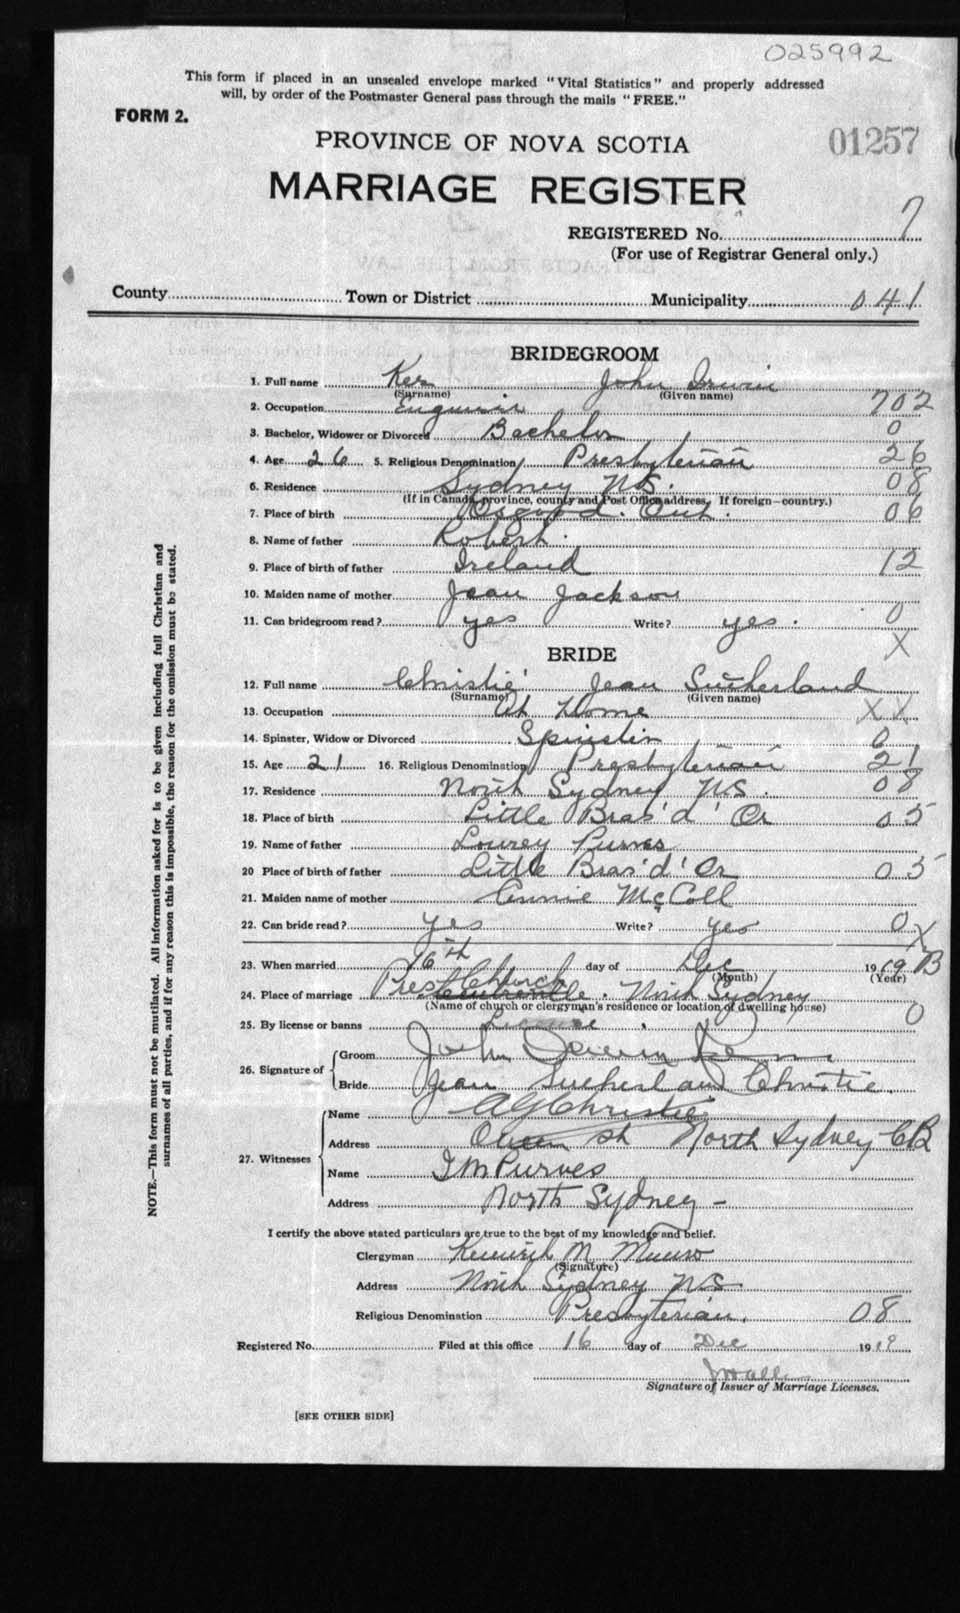 025992
This form if placed in an unsealed envelope marked "Vital Statistics" and properly addressed
will, by order of the Postmaster General pass through the mails "FREE."
FORM 2.
01257
PROVINCE OF NOVA SCOTIA
MARRIAGE REGISTER
REGISTERED No. 7
(For use of Registrar General only.)
County Town or District Municipality 041
BRIDEGROOM
1. Full name Ker John Irwin
(Surname) (Given name)
2. Occupation Engineer 702
3. Bachelor, Widower or Divorced Bachelor 0
4. Age 26 5. Religious Denomination Presbyterian 26
6. Residence Sydney N.S. 08
(If in Canada, province, county and Post Office address. If foreign—country.)
7. Place of birth Osgood. Ont. 06
8. Name of father Robert.
9. Place of birth of father Ireland 12
10. Maiden name of mother Jean Jackson
11. Can bridegroom read? yes Write? yes. 0
X
BRIDE
12. Full name Christie Jean Sutherland
(Surname) (Given name)
13. Occupation At Home XX
14. Spinster, Widow or Divorced Spinster 0
15. Age 21 16. Religious Denomination Presbyterian 21
17. Residence North Sydney N.S. 08
18. Place of birth Little Bras'd'Or 05
19. Name of father Lowrey Purves
20 Place of birth of father Little Bras'd'Or 05
21. Maiden name of mother Annie McColl
22. Can bride read? yes Write? yes 0 X
23. When married 16th day of Dec 1919 B
(Month) (Year)
24. Place of marriage Pres Church North Sydney
(Name of church or clergyman's residence or location of dwelling house) 0
25. By license or banns License
26. Signature of Groom John Irwin Ker
Bride Jean Sutherland Christie.
27. Witnesses Name A G Christie
Address Queen St North Sydney CB
Name I M Purves
Address North Sydney -
I certify the above stated particulars are true to the best of my knowledge and belief.
Clergyman Kenneth M Munro
(Signature)
Address North Sydney N.S
Religious Denomination Presbyterian. 08
Registered No. Filed at this office 16 day of Dec 1919
Signature of Issuer of Marriage Licenses.
[SEE OTHER SIDE]
NOTE.—This form must not be mutilated. All information asked for is to be given including full Christian and
surnames of all parties, and if for any reason this is impossible, the reason for the omission must be stated.